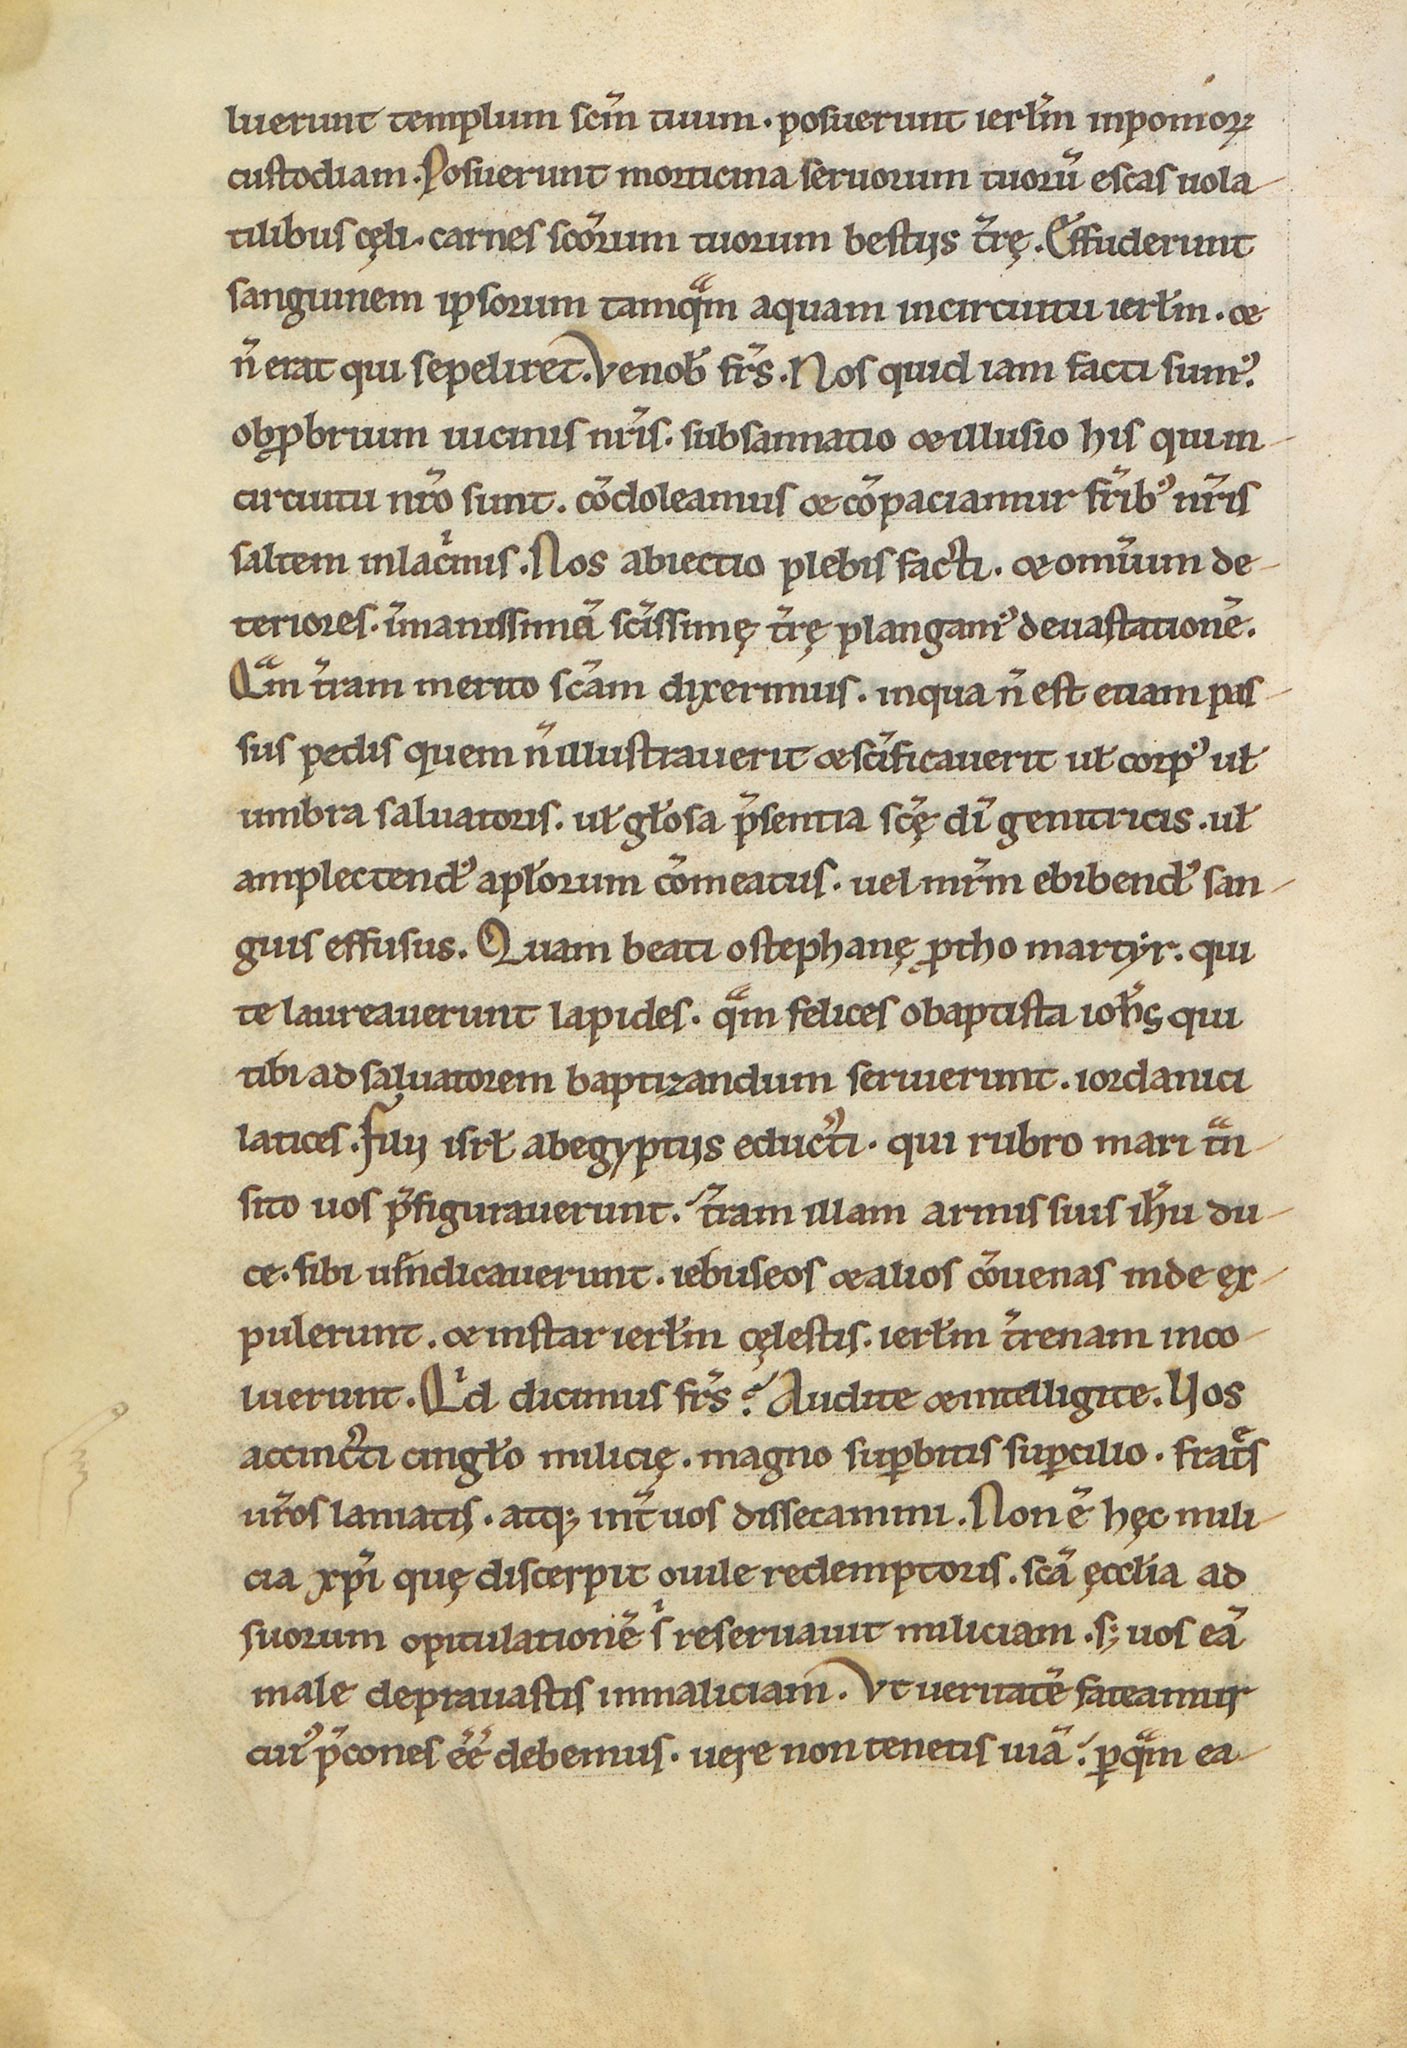 luerunt templum scm̄ tuum. posuerunt ierl̄m inpomoꝝ
custodiam. Posuerunt morticina seruorum tuorū escas uola
tilibus cęli. carnes scōrum tuorum bestijs tr̄ę. Effuderunt
sanguinem ipsorum tamqᵃm aquam incircuitu ierl̄m. &
n̄ erat qui sepeliret. Venob̄ fr̄s. Nos quid iam facti sumꝰ.
obꝓbrium uicinis nr̄is. subsannatio & illusio his qui in
circuitu nr̄o sunt. cōdoleamus & cōpaciamur fr̄ibꝰ nr̄is
saltem inlacⁱmis. Nos abiectio plebis facti. & omīum de
teriores. īmanissimā sc̄issimę tr̄ę plangamꝰ deuastationē.
Qᵃm tr̄am merito sc̄am dixerimus. inqua n̄ est etiam pas
sus pedis quem n̄ illustrauerit & sc̄ificauerit uł corpꝰ uł
umbra saluatoris. uł gło̅sa p̄sentia sc̄ę dī genitricis. uł
amplectendꝰ apl̄orum cōmeatus. uel mr̄m ebibendꝰ san
guis effusus. Quam beati o stephanę ꝓtho martyr. qui
te laureauerunt lapides. qᵃm felices o baptista ioh̄s qui
tibi ad saluatorem baptizandum seruierunt. iordanici
latices. Filij isrł abegyptijs educti. qui rubro mari tᵃn
sito uos p̄figurauerunt. tr̄am illam armis suis ih̄u du
ce. sibi uēndicauerunt. iebuseos & alios cōuenas inde ex
pulerunt. & instar ierl̄m cęlestis. ierl̄m tr̄renam inco
luerunt. Qⁱd dicimus fr̄s? Audite & intelligite. Uos
accincti cingło milicię. magno suꝑbitis suꝑcilio. frat̄s
ur̄os laniatis. atqꝫ int̄ uos dissecamini. Non ē hęc mili
cia xp̄i quę discerpit ouile redemptoris. sc̄ā ęccl̄ia ad
suorum opitulationē sⁱ reseruauit miliciam. sꝫ uos eā
male deprauastis inmaliciam. Vt ueritatē fateamur
cuiꝰ p̄cones ēē debemus. uere non tenetis uiā. ꝑqᵃm ea